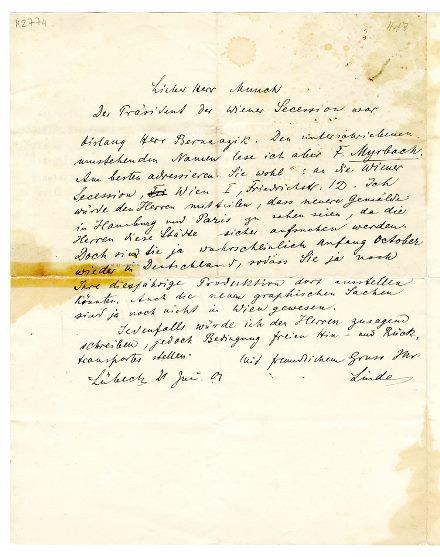 K2774
Lieber Herr Munch
Der Präsident der Wiener Secession war
bislang Herr Bernaazik. Den unterschriebenen
umstehenden Namen lese ich aber F. Myrbach.
Am besten adressieren Sie wohl: an die Wiener
Secession, Wien I, Friedrichstr. 12. Ich
würde den Herren mitteilen, dass neuere Gemälde
in Hamburg und Paris zu sehen seien, da die
Herren diese Städte sicher aufsuchen werden.
Doch sind Sie ja wahrscheinlich anfang October
wieder in Deutschland, sodass Sie ja noch
Ihre diesjährige Produktion dort ausstellen
könnten. Auch die neuen graphischen Sachen
sind ja noch nicht in Wien gewesen.
Jedenfalls würde ich den Herren zusagend
schreiben, jedoch Bedingung freien Hin- und Rück-
transportes stellen.
Mit freundlichem Gruss Ihr
Lübeck 20 Juni 03 Linde